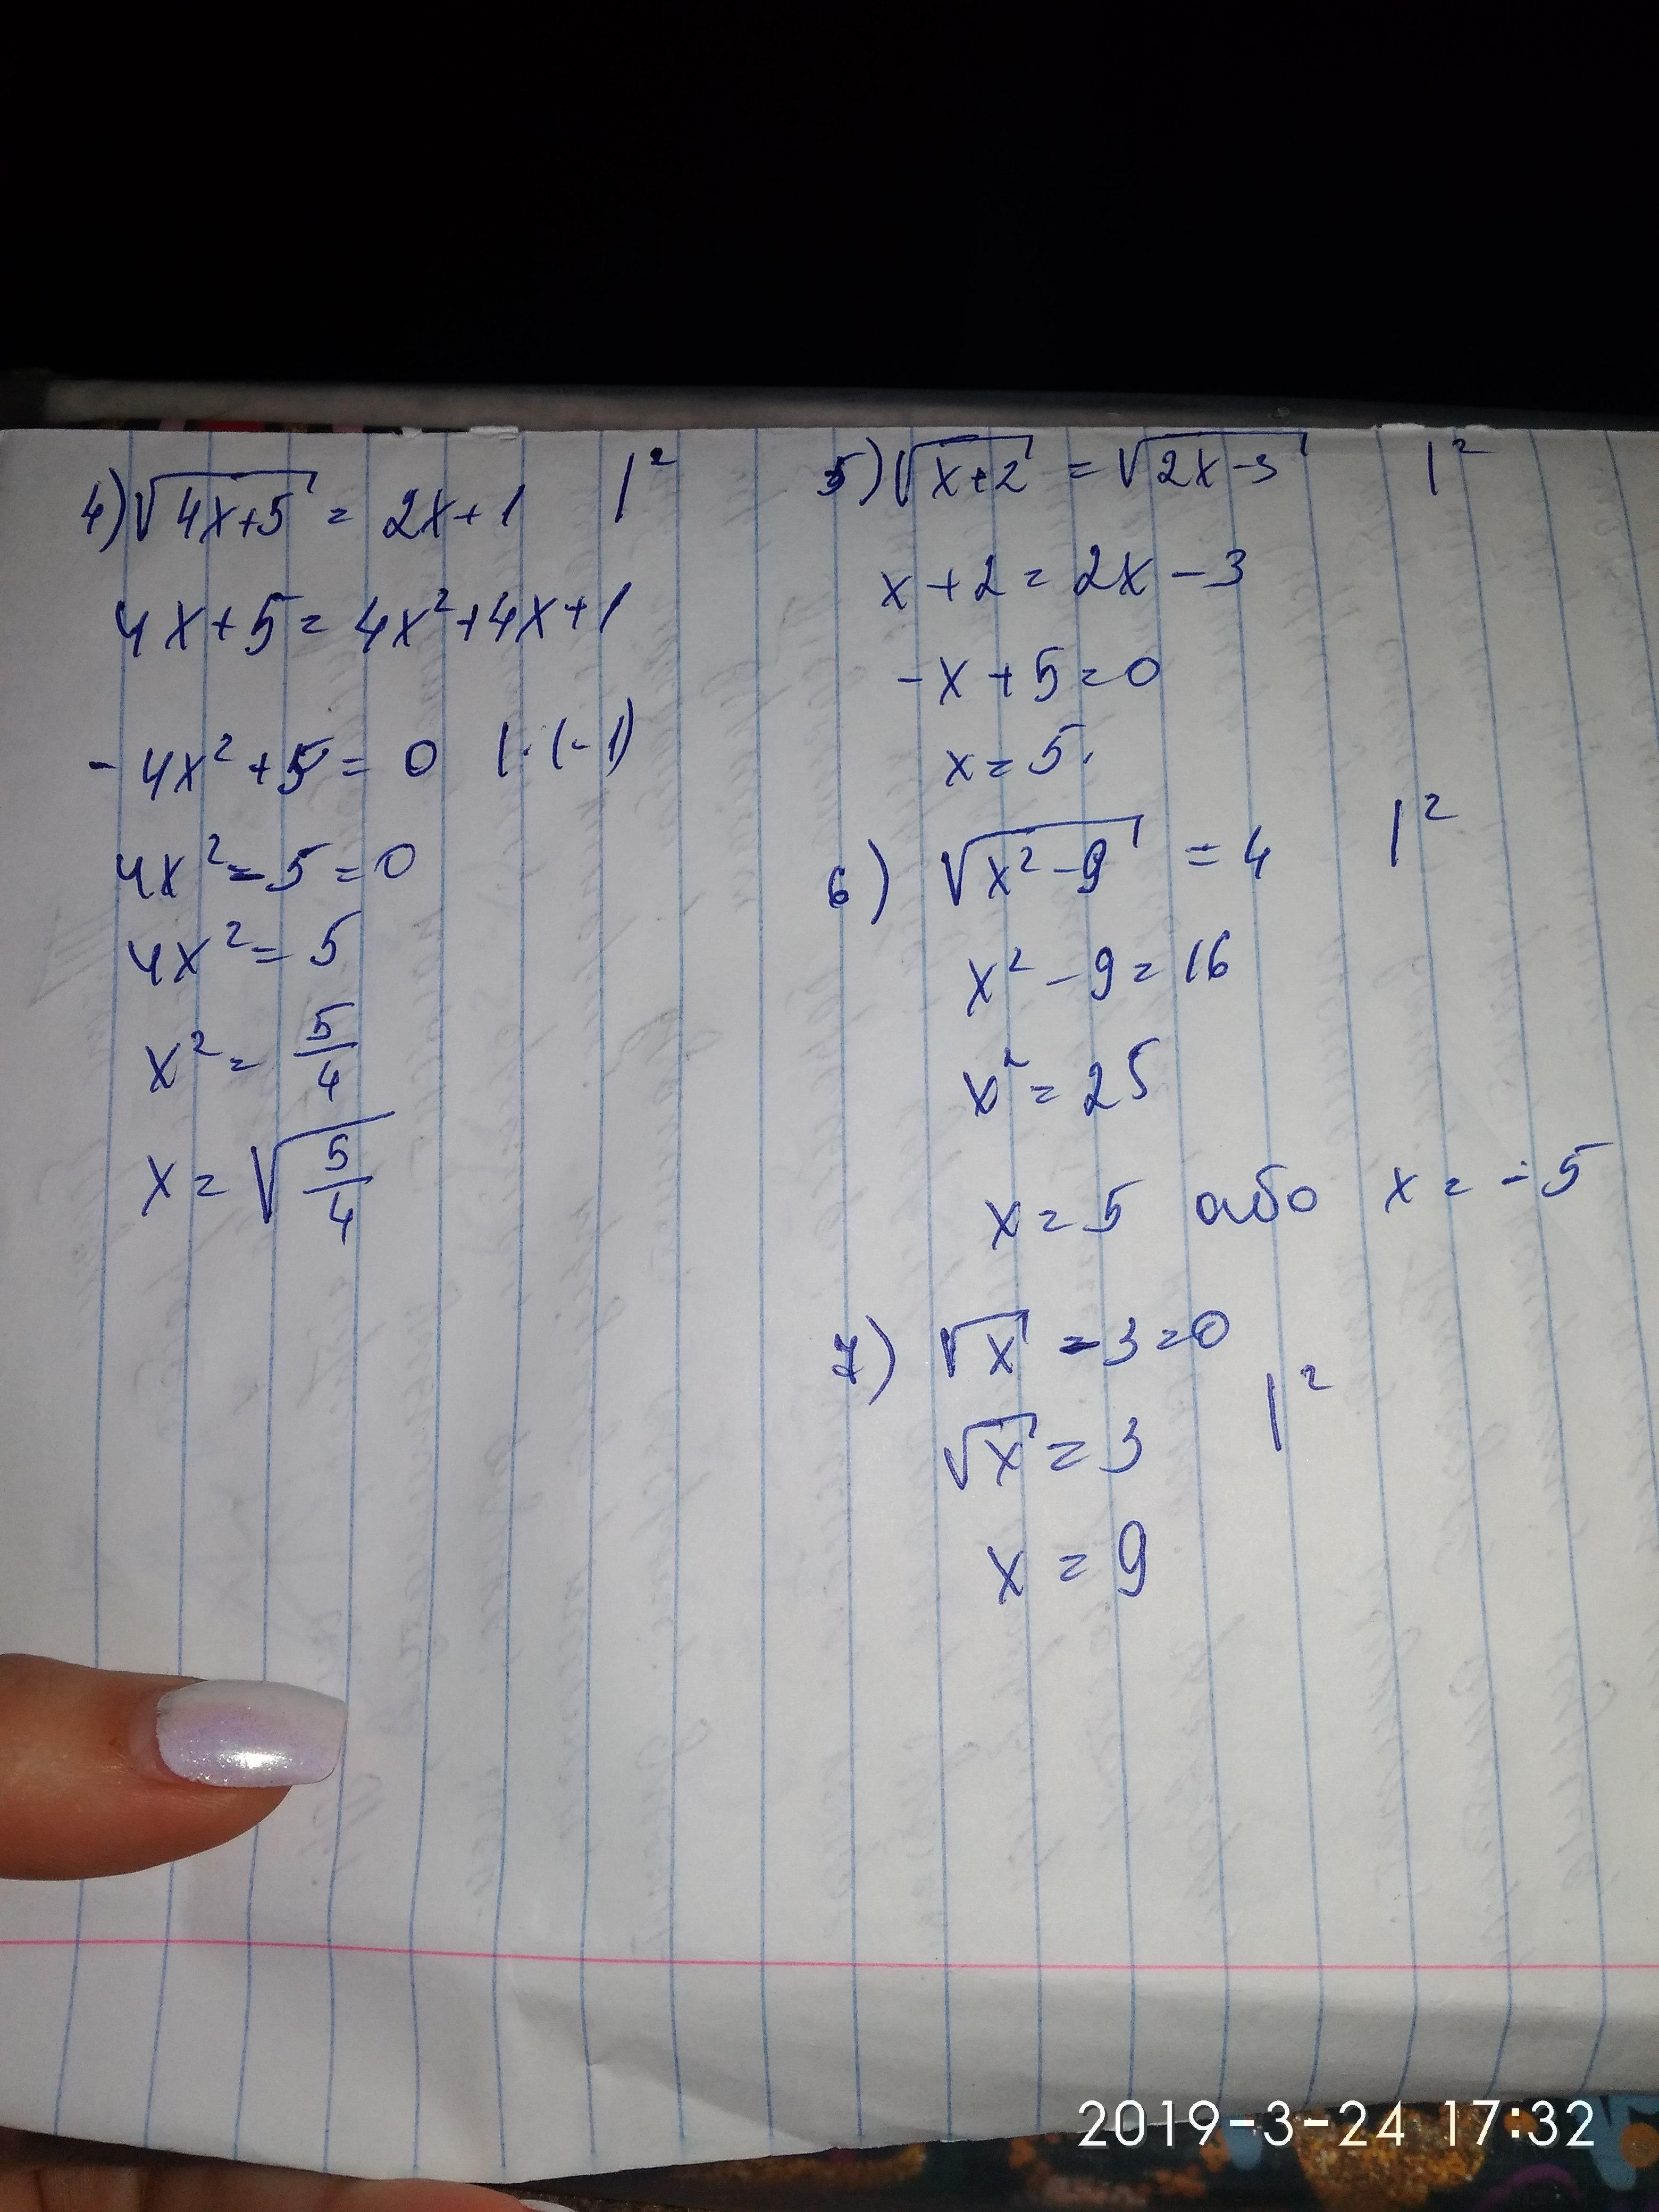 4) √(4x+5) = 2x+1 |²
4x+5 = 4x²+4x+1
-4x²+5 = 0 |·(-1)
4x²-5=0
4x²=5
x² = 5/4
x = √(5/4)
5) √(x+2) = √(2x-3) |²
x+2 = 2x-3
-x+5=0
x=5.
6) √(x²-9) = 4 |²
x²-9=16
x²=25
x=5 або x=-5
7) √x -3=0
√x=3 |²
x=9
2019-3-24 17:32